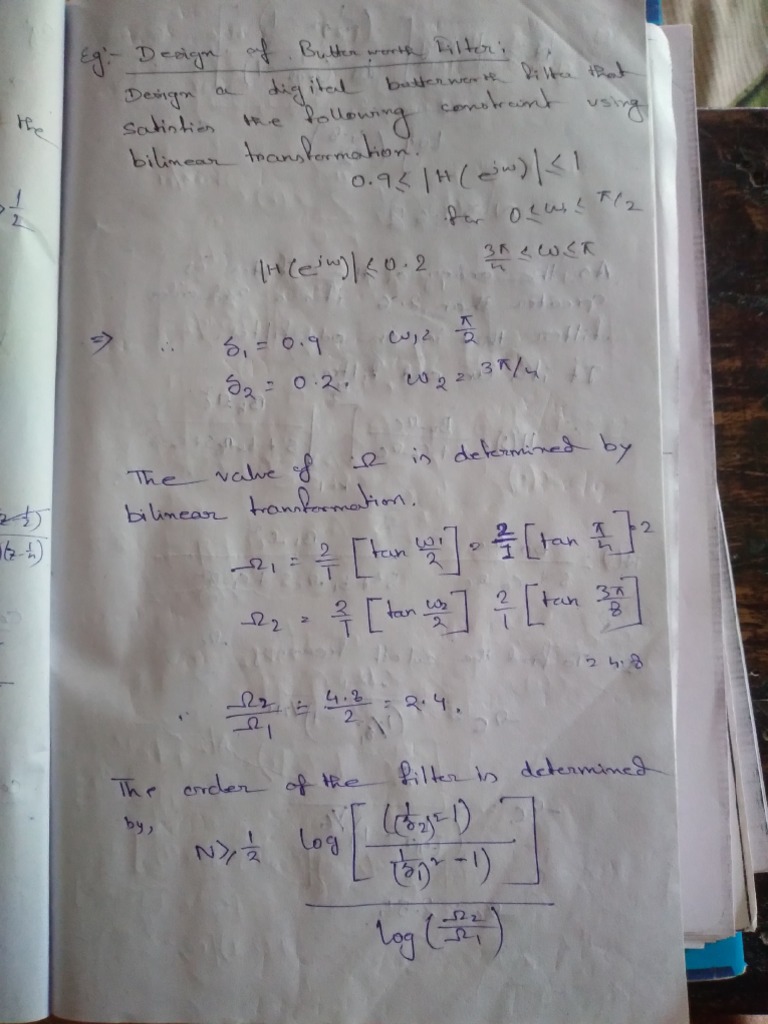 Eg:- Design of Butterworth Filter:
Design a digital butterworth filter that
satisfies the following constraint using
bilinear transformation.
0.9 ≤ |H(e^jω)| ≤ 1
for 0 ≤ ω ≤ π/2
|H(e^jω)| ≤ 0.2 3π/4 ≤ ω ≤ π
⇒ ∴ δ1 = 0.9 ω1 = π/2
δ2 = 0.2. ω2 = 3π/4
The value of Ω is determined by
bilinear transformation.
Ω1 = 2/T [tan ω1/2] = 2/1 [tan π/4] = 2
Ω2 = 2/T [tan ω2/2] 2/1 [tan 3π/8]
= 4.8
∴ Ω2/Ω1 = 4.8/2 = 2.4.
The order of the filter is determined
by,
N ≥ 1/2 log [((1/δ2)^2 - 1) / ((1/δ1)^2 - 1)]
log (Ω2/Ω1)
the
1/2